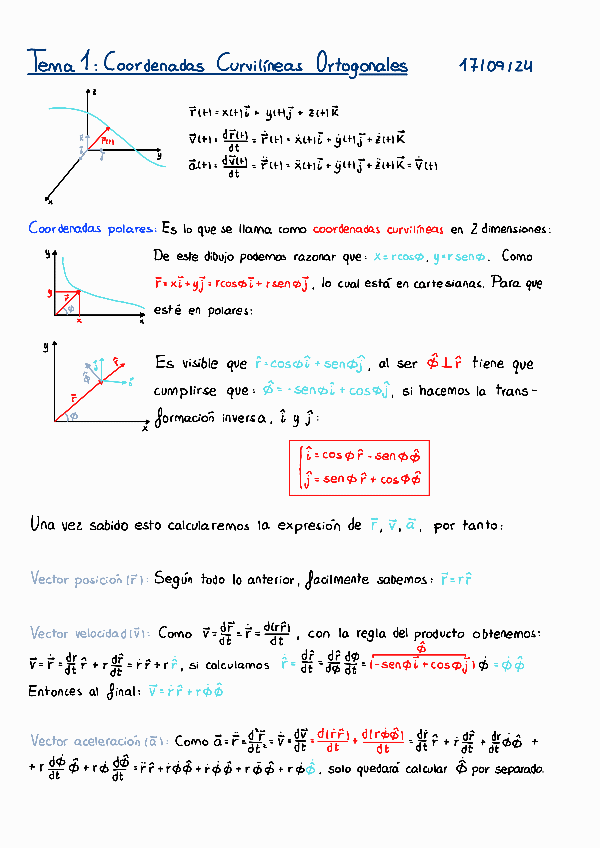 Tema 1: Coordenadas Curvilíneas Ortogonales 17/09/24
z
r⃗(t)
k⃗
i⃗ j⃗
y
x
r⃗(t) = x(t)i⃗ + y(t)j⃗ + z(t)k⃗
v⃗(t) = dr⃗(t)/dt = ṙ⃗(t) = ẋ(t)i⃗ + ẏ(t)j⃗ + ż(t)k⃗
a⃗(t) = dv⃗(t)/dt = r̈⃗(t) = ẍ(t)i⃗ + ÿ(t)j⃗ + z̈(t)k⃗ = v̇⃗(t)
Coordenadas polares: Es lo que se llama como coordenadas curvilíneas en 2 dimensiones:
y
y
r⃗
ϕ
x x
De este dibujo podemos razonar que: x = rcosϕ, y = rsenϕ. Como
r⃗ = xi⃗ + yj⃗ = rcosϕi⃗ + rsenϕj⃗, lo cual está en cartesianas. Para que
esté en polares:
y
ϕ̂ ĵ r̂
î
r⃗
ϕ
x
Es visible que r̂ = cosϕi⃗ + senϕĵ, al ser ϕ̂ ⊥ r̂ tiene que
cumplirse que: ϕ̂ = -senϕi⃗ + cosϕĵ, si hacemos la trans-
formación inversa, î y ĵ:
î = cosϕ r̂ - senϕϕ̂
ĵ = senϕ r̂ + cosϕϕ̂
Una vez sabido esto calcularemos la expresión de r⃗, v⃗, a⃗, por tanto:
Vector posición (r⃗): Según todo lo anterior, facilmente sabemos: r⃗ = rr̂
Vector velocidad (v⃗): Como v⃗ = dr⃗/dt = ṙ⃗ = d(rr̂)/dt, con la regla del producto obtenemos:
ϕ̂
v⃗ = ṙ⃗ = dr/dt r̂ + r dr̂/dt = ṙr̂ + rṙ̂, si calculamos ṙ̂ = dr̂/dt = dr̂/dϕ dϕ/dt = (-senϕi⃗ + cosϕj⃗)ϕ̇ = ϕ̇ϕ̂
Entonces al final: v⃗ = ṙr̂ + rϕ̇ϕ̂
Vector aceleración (a⃗): Como a⃗ = r̈⃗ = d²r⃗/dt² = v̇⃗ = dv⃗/dt = d(ṙr̂)/dt + d(rϕ̇ϕ̂)/dt = dṙ/dt r̂ + ṙ dr̂/dt + dr/dt ϕ̇ϕ̂ +
+ r dϕ̇/dt ϕ̂ + rϕ̇ dϕ̂/dt = r̈r̂ + ṙϕ̇ϕ̂ + ṙϕ̇ϕ̂ + rϕ̈ϕ̂ + rϕ̇ϕ̂̇, solo quedará calcular ϕ̂̇ por separado.